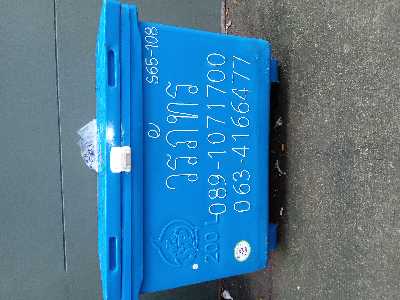 S65-108
วรภัทร
200 L
089-1071700
063-4166477